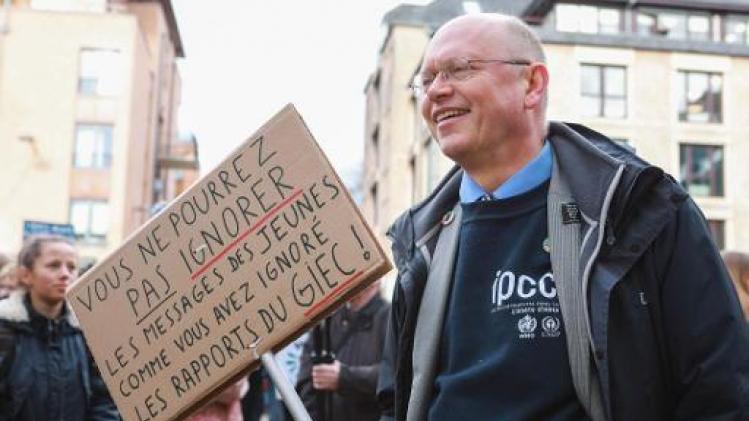 VOUS NE POURREZ
PAS IGNORER
LES MESSAGES DES JEUNES
COMME VOUS AVEZ IGNORÉ
LES RAPPORTS DU GIEC !
ipcc
WMO